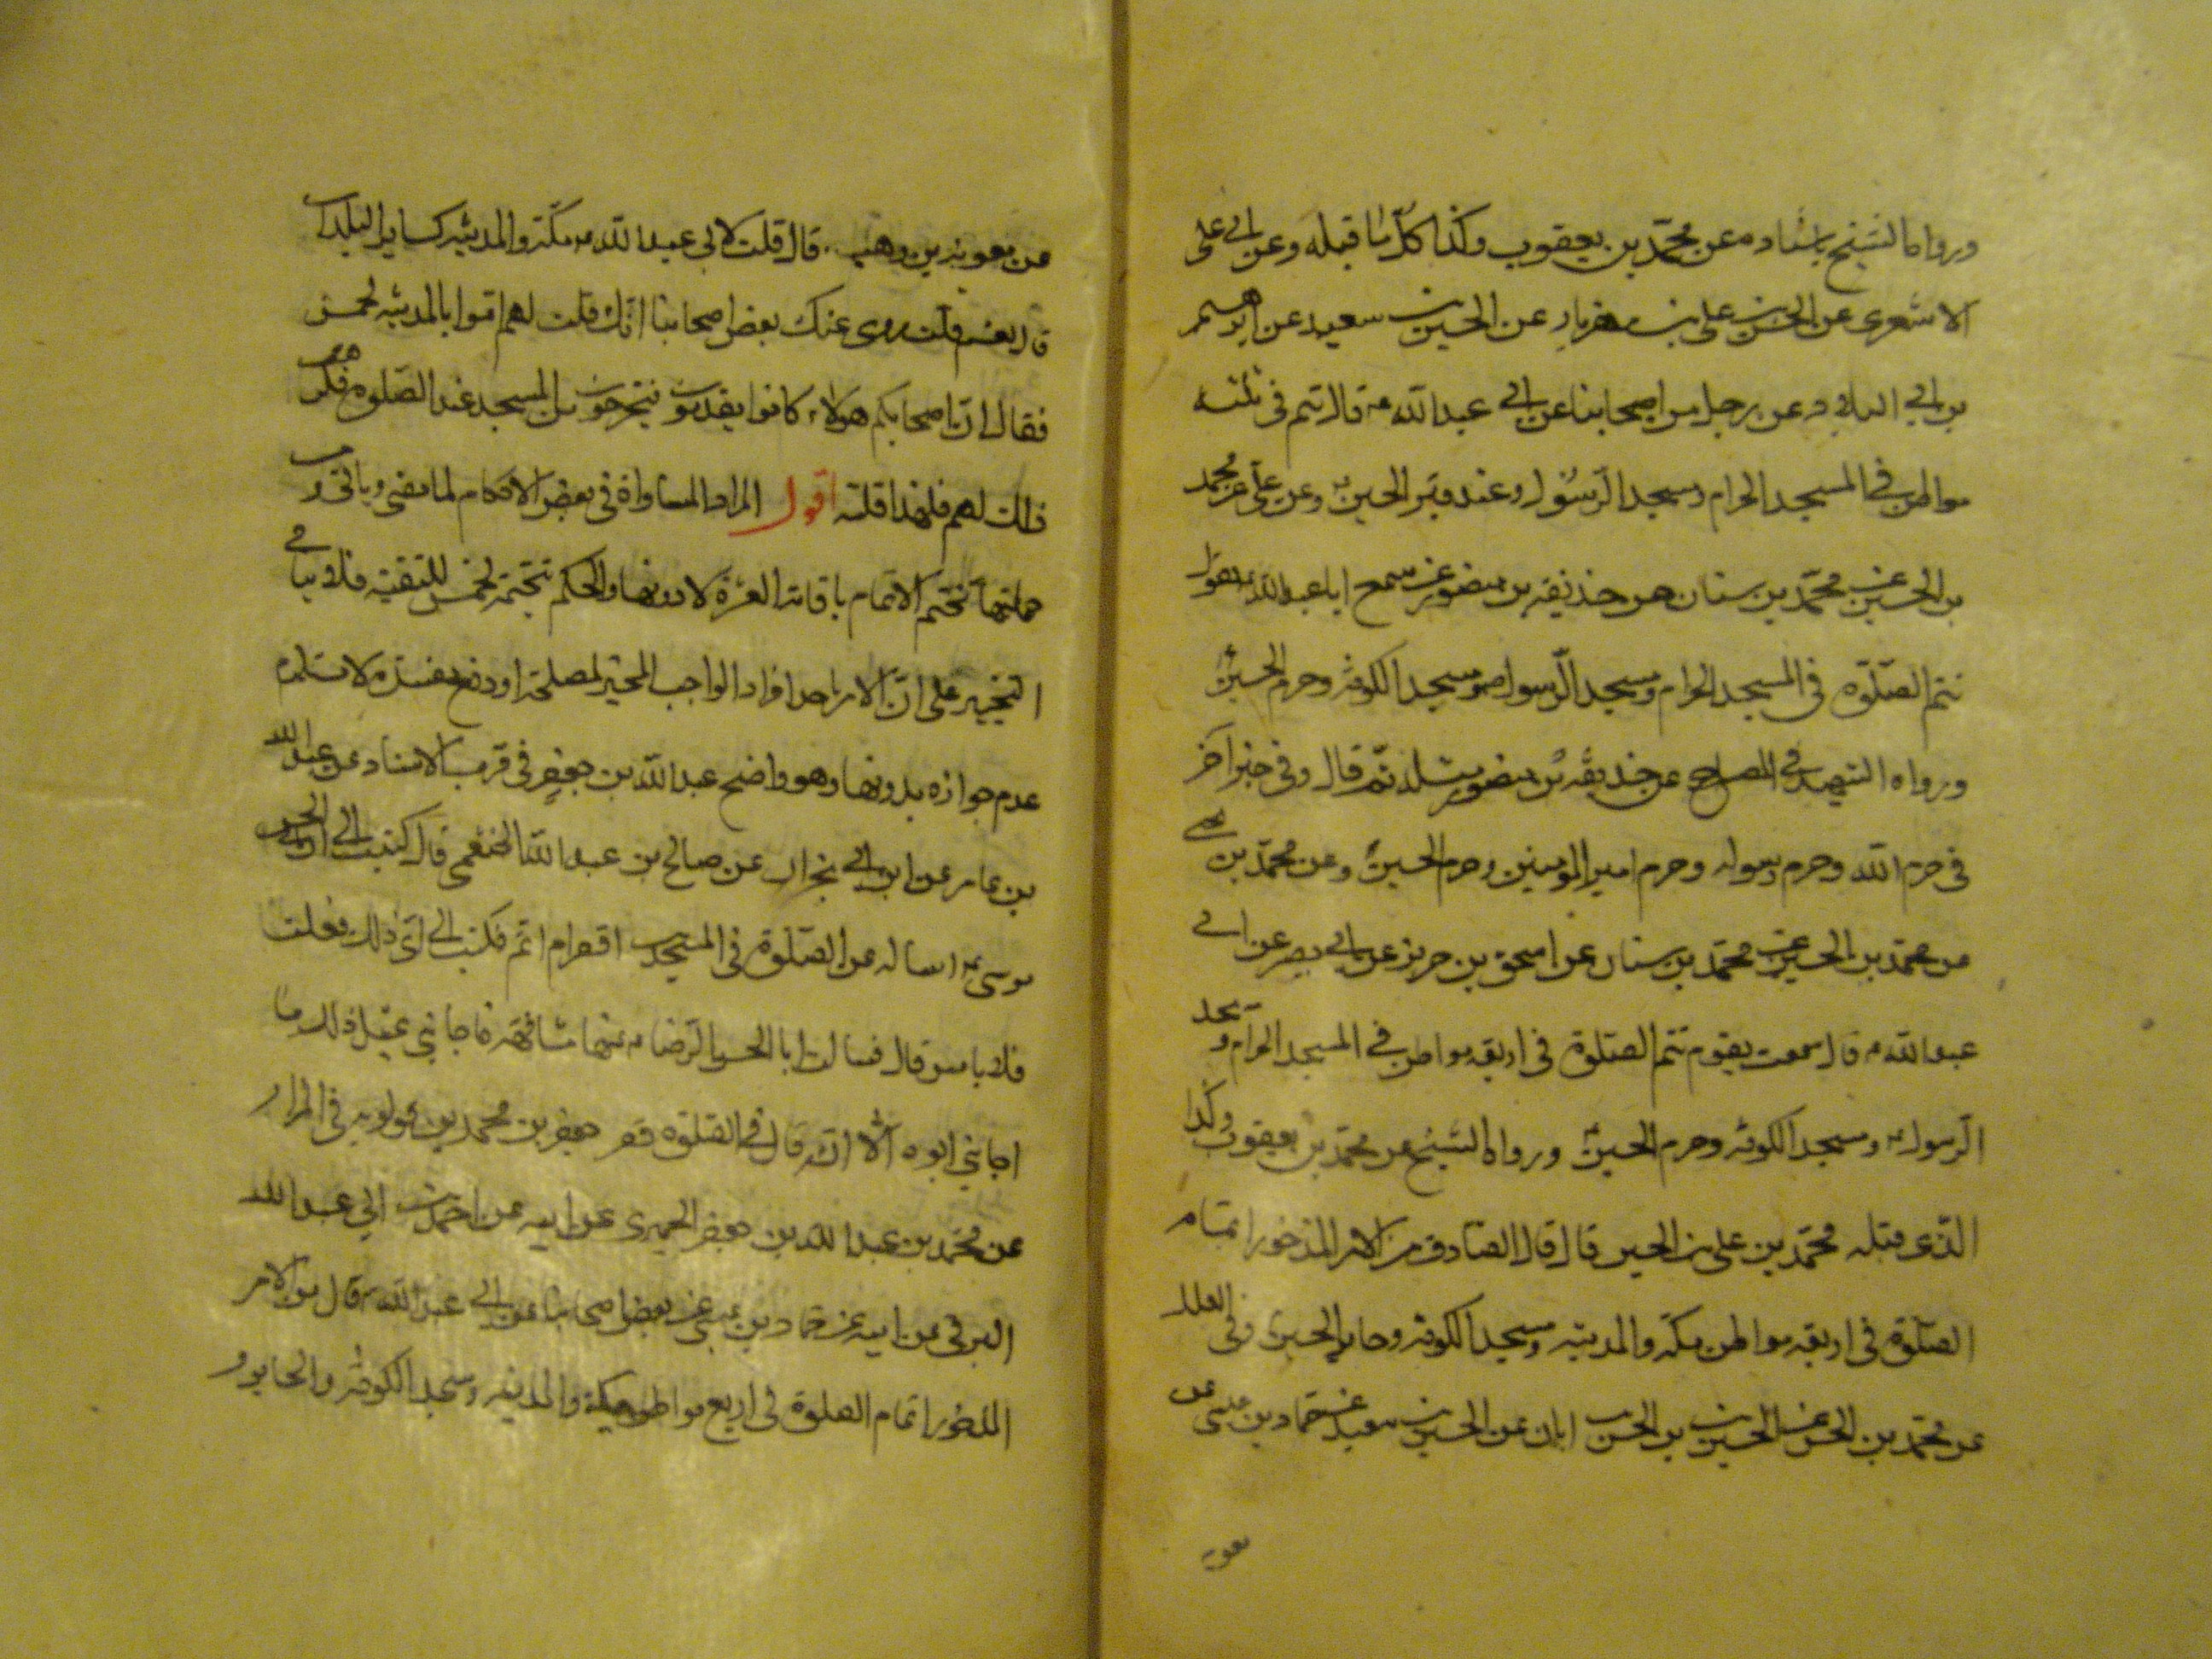 ورواه الشيخ باسناده عن محمد بن يعقوب وكذا كل ما قبله وعن ابي علي
الاشعري عن الحسن بن علي بن مهزيار عن الحسين بن سعيد عن ابرهيم
بن ابي البلاد عن رجل من اصحابنا عن ابي عبد الله ع قال تتم في ثلثة
مواطن في المسجد الحرام ومسجد الرسول وعند قبر الحسين ع وعن علي عن محمد
بن الحسين عن محمد بن سنان عن حذيفة بن منصور عن سمع ابا عبد الله ع يقول
تتم الصلوة في المسجد الحرام ومسجد الرسول ص ومسجد الكوفة وحرم الحسين ع
ورواه الشيخ في المصباح عن حذيفة بن منصور مثله ثم قال وفي خبر اخر
في حرم الله وحرم رسوله وحرم امير المؤمنين وحرم الحسين ع وعن محمد بن يحيى
عن محمد بن الحسين عن محمد بن سنان عن اسحق بن حريز عن ابي بصير عن ابي
عبد الله ع قال سمعت يقول تتم الصلوة في اربعة مواطن في المسجد الحرام ومسجد
الرسول ص ومسجد الكوفة وحرم الحسين ع ورواه الشيخ عن محمد بن يعقوب وكذا
الذي قبله محمد بن علي بن الحسين قال قال الصادق ع من الامر المذخور اتمام
الصلوة في اربعة مواطن مكة والمدينة ومسجد الكوفة وحاير الحسين وفي العلل
عن محمد بن الحسن عن الحسين بن الحسن بن ابان عن الحسين بن سعيد عن حماد بن عيسى عن
معوية
عن معوية بن وهب قال قلت لابي عبد الله ع مكة والمدينة كساير البلدان
قال نعم قلت روى عنك بعض اصحابنا انك قلت لهم اتموا بالمدينة لخمس
فقال ان اصحابكم هؤلاء كانوا يقدمون فيخرجون من المسجد عند الصلوة فكرهت
ذلك لهم فلهذا قلته اقول المراد المساواة في بعض الاحكام لما مضى وياتي ومن
جملتها تحتم الاتمام باقامة العشرة لا دونها والحكم بتحتمه لخمس للتقية فلا ينافي
التخيير على ان الامر باحد افراد الواجب المخير لمصلحة او دفع مفسدة لا يستلزم
عدم جوازه بدونها وهو واضح عبد الله بن جعفر في قرب الاسناد عن عبد الله
بن عامر عن ابن ابي نجران عن صالح بن عبد الله الخثعمي قال كتبت الى ابي الحسن
موسى ع اساله عن الصلوة في المسجدين اقصر ام اتم فكتب الي اي ذلك فعلت
فلا باس قال فسالت ابا الحسن الرضا ع عنها مشافهة فاجابني بمثل ذلك ما
اجابني ابوه الا انه قال في الصلوة قصر جعفر بن محمد بن قولويه في المزار
عن محمد بن عبد الله بن جعفر الحميري عن ابيه عن احمد بن ابي عبد الله
البرقي عن ابيه عن حماد بن عيسى عن بعض اصحابنا عن ابي عبد الله ع قال من الامر
المذخور اتمام الصلوة في اربع مواطن بمكة والمدينة ومسجد الكوفة والحاير و